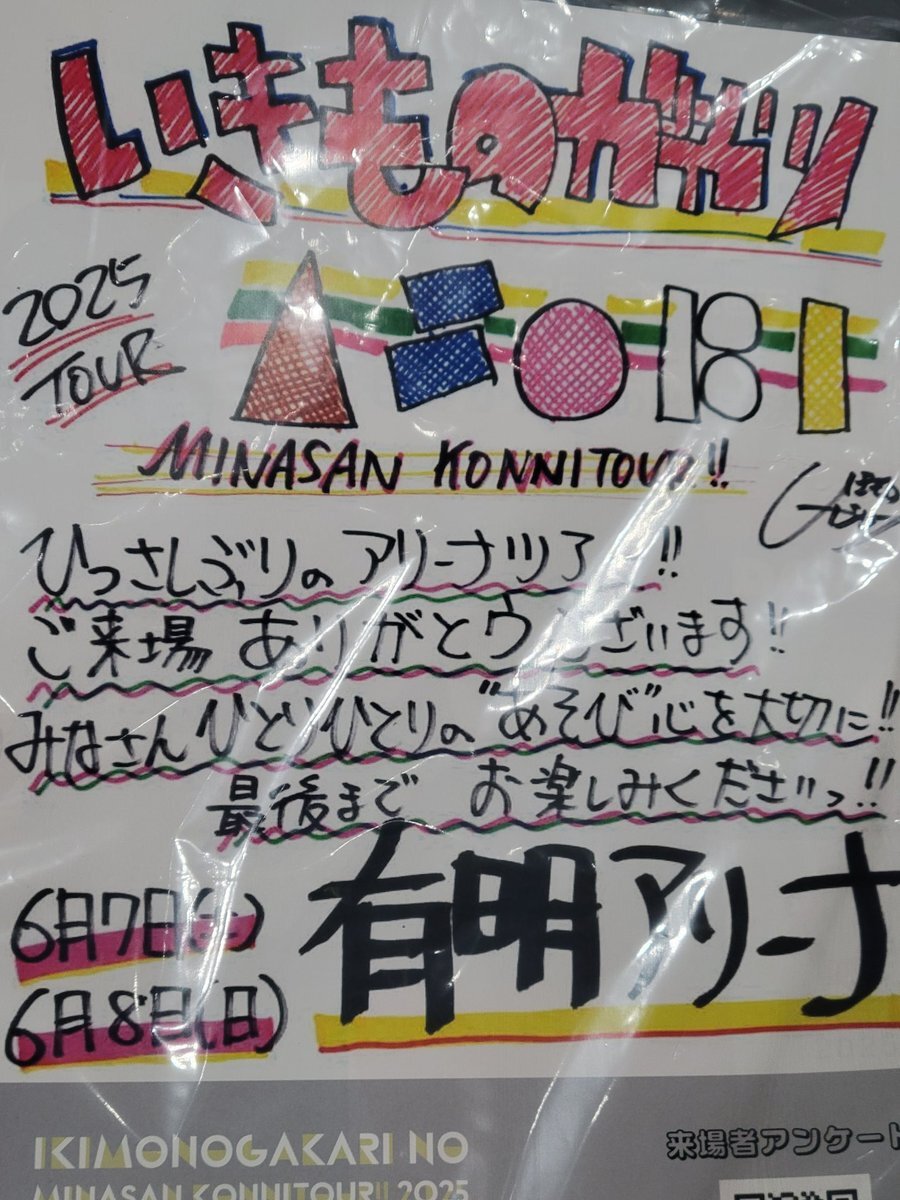 いきものがかり
2025
TOUR
ASOBI
MINASAN KONNITOUR!!
ひっさしぶりのアリーナツアー!!
ご来場ありがとうございます!!
みなさんひとりひとりの"あそび"心を大切に!!
最後まで お楽しみくださいっ!!
6月7日(土)
6月8日(日)
有明アリーナ
IKIMONOGAKARI NO
MINASAN KONNITOUR!! 2025
来場者アンケート